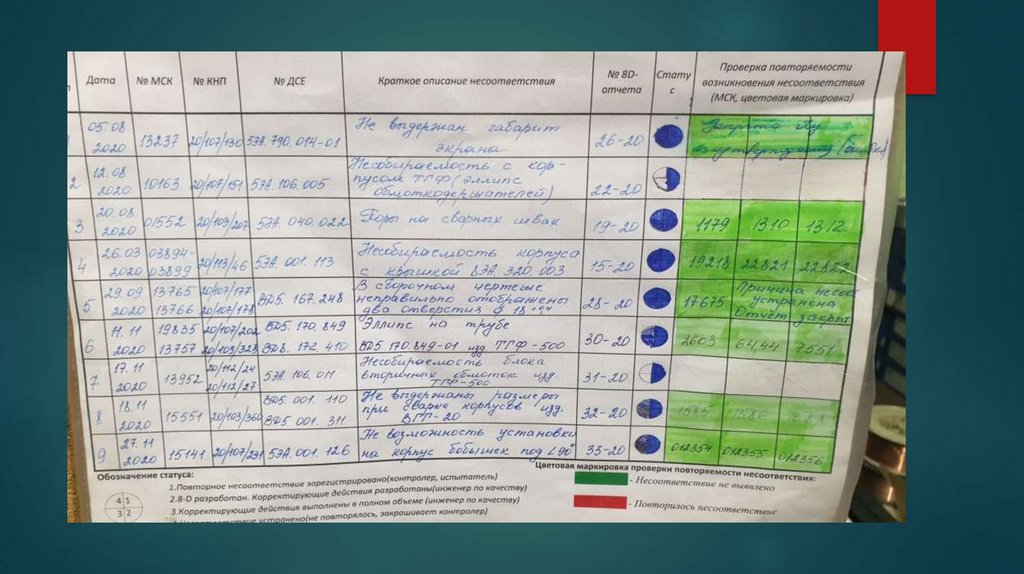 Дата № МСК № КНП № ДСЕ Краткое описание несоответствия № 8D- Стату Проверка повторяемости
отчета с возникновения несоответствия
(МСК, цветовая маркировка)
05.08 Не выдержан габарит
2020 13237 20/107/130 5ЭА.790.014-01 экрана 26-20
12.08 Несобираемость с кор-
2 2020 10163 20/107/151 5ЭА.106.005 пусом ТГФ (эллипс 22-20
обмоткодержателей)
20.08
3 2020 01552 20/103/207 5ЭА.040.022 Поры на сварных швах 19-20 1179 1310 1312
26.03 03894- Несобираемость корпуса
4 2020 03899 20/113/46 5ЭА.001.113 с крышкой 8ЭА.320.003 15-20 19218 22821
29.09 13765 20/107/177 В сборочном чертеже Причина
5 2020 13766 20/107/178 ВД5.167.248 неправильно отображены 28-20 17675 устранена
два отверстия Отчёт закрыт
11.11 19835 20/107/202 ВД5.170.849 Эллипс на трубе
6 2020 13757 20/103/328 ВД8.172.410 ВД5.170.849-01 изд. ТГФ-500 30-20 2603 6444 7551
17.11 20/112/24 Несобираемость блока
7 2020 13952 20/112/27 5ЭА.106.011 вторичных обмоток изд. 31-20
ТГФ-500
18.11 ВД5.001.110 Не выдержаны размеры
8 2020 15551 20/103/360 ВД5.001.311 при сварке корпусов изд. 32-20 1585
ВГГ-20
27.11 Не возможность установки
9 2020 15141 20/107/231 5ЭА.001.126 на корпус бобышек под ∠90° 33-20 012354 012355 012356
Обозначение статуса: Цветовая маркировка проверки повторяемости несоответствия:
1.Повторное несоответствие зарегистрировано(контролер, испытатель) - Несоответствие не выявлено
4 1 2.8-D разработан. Корректирующие действия разработаны(инженер по качеству)
3 2 3.Корректирующие действия выполнены в полном объеме (инженер по качеству) - Повторилось несоответствие
устранено(не повторялось, закрашивает контролер)